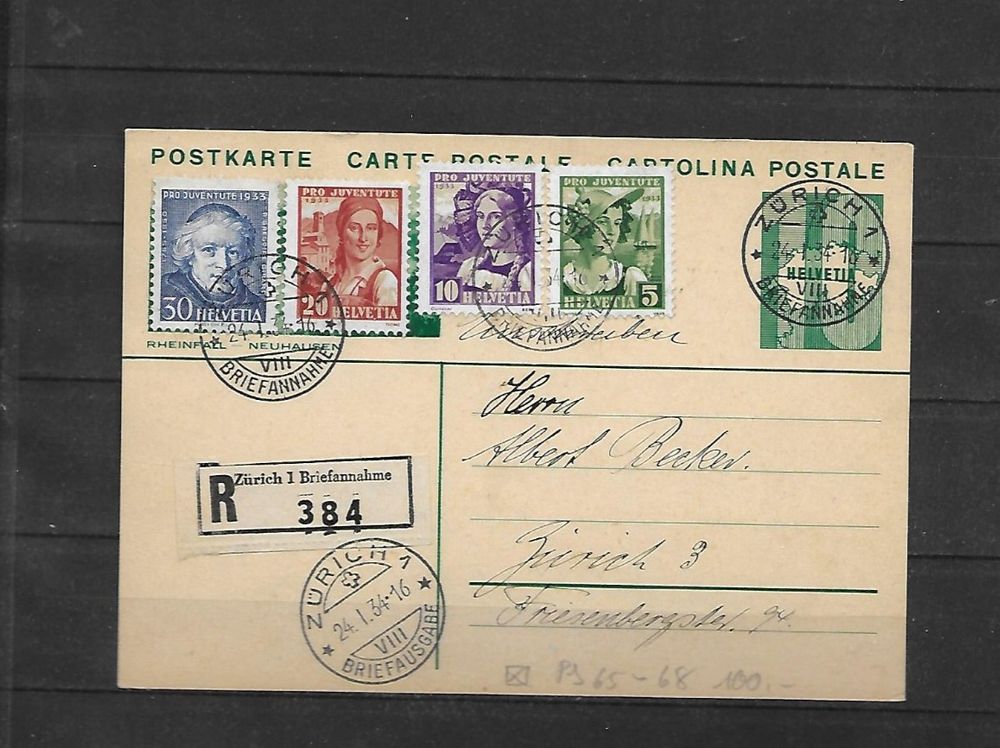 POSTKARTE CARTE POSTALE CARTOLINA POSTALE
PRO JUVENTUTE 1933
30 HELVETIA
PRO JUVENTUTE
1933
20 HELVETIA
PRO JUVENTUTE
1933
10 HELVETIA
PRO JUVENTUTE
1933
HELVETIA 5
ZÜRICH 1
24.I.34-16
HELVETIA
VIII
BRIEFANNAHME
RHEINFALL NEUHAUSEN
ZÜRICH 1
24.I.34-16
VIII
BRIEFANNAHME
ZÜRICH
34-16
BRIEFANNAHME
Einschreiben
Herrn
Albert Becker.
Zürich 3
Friesenbergstr. 94.
R Zürich 1 Briefannahme
384
ZÜRICH 1
24.I.34-16
VIII
BRIEFAUSGABE
PJ 65-68 100.-